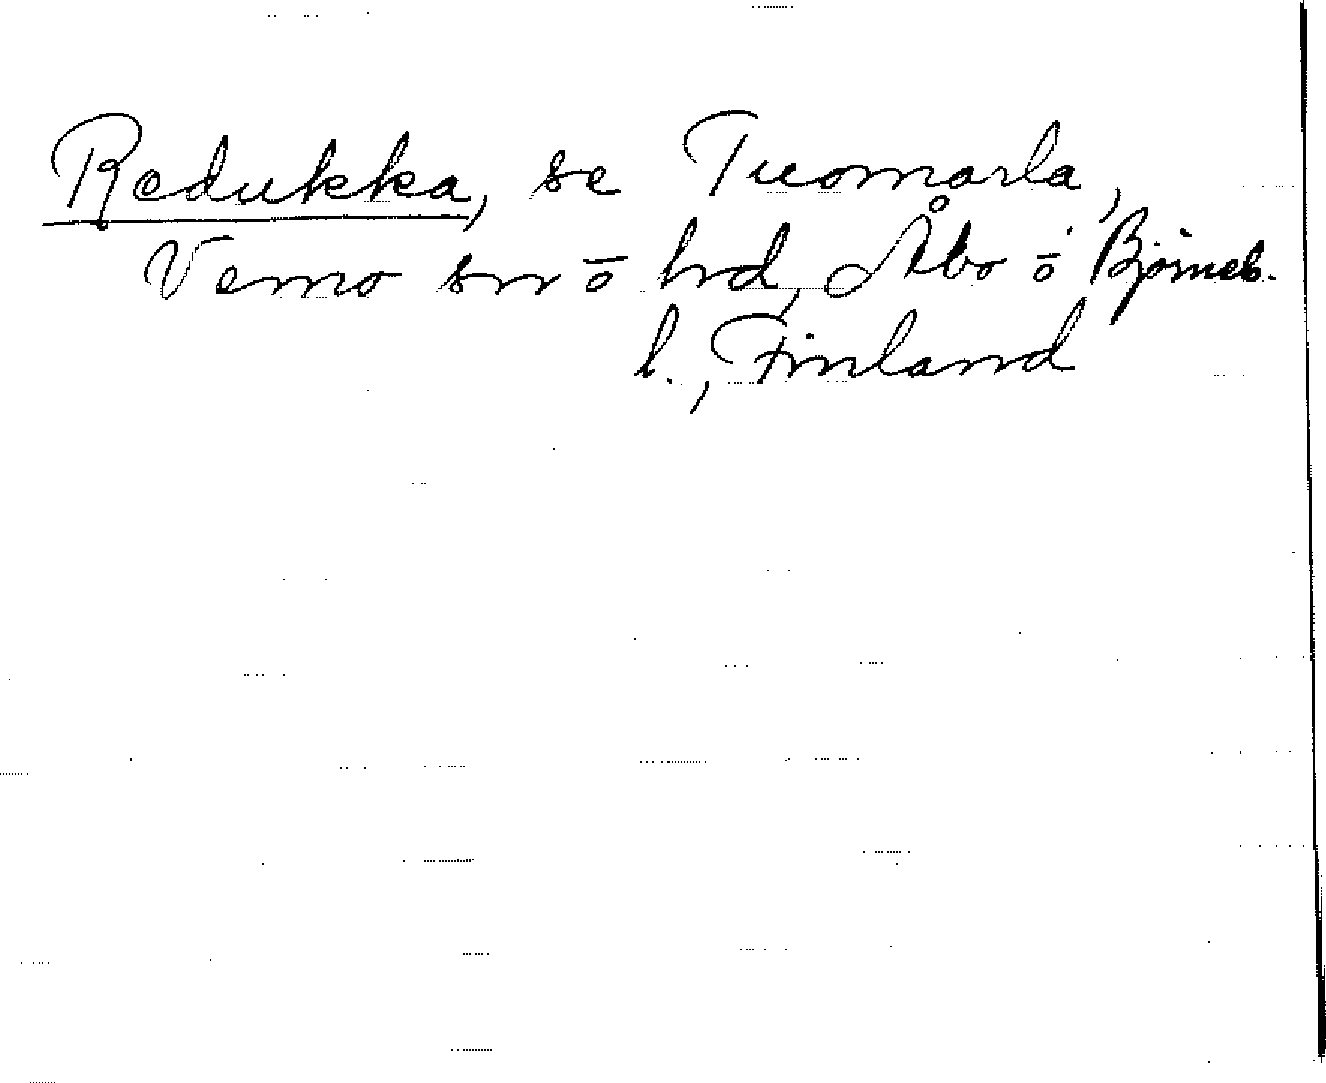 Redukka, se Tuomarla,
Vemo sn ō hd, Åbo ō Björneb.
l., Finland